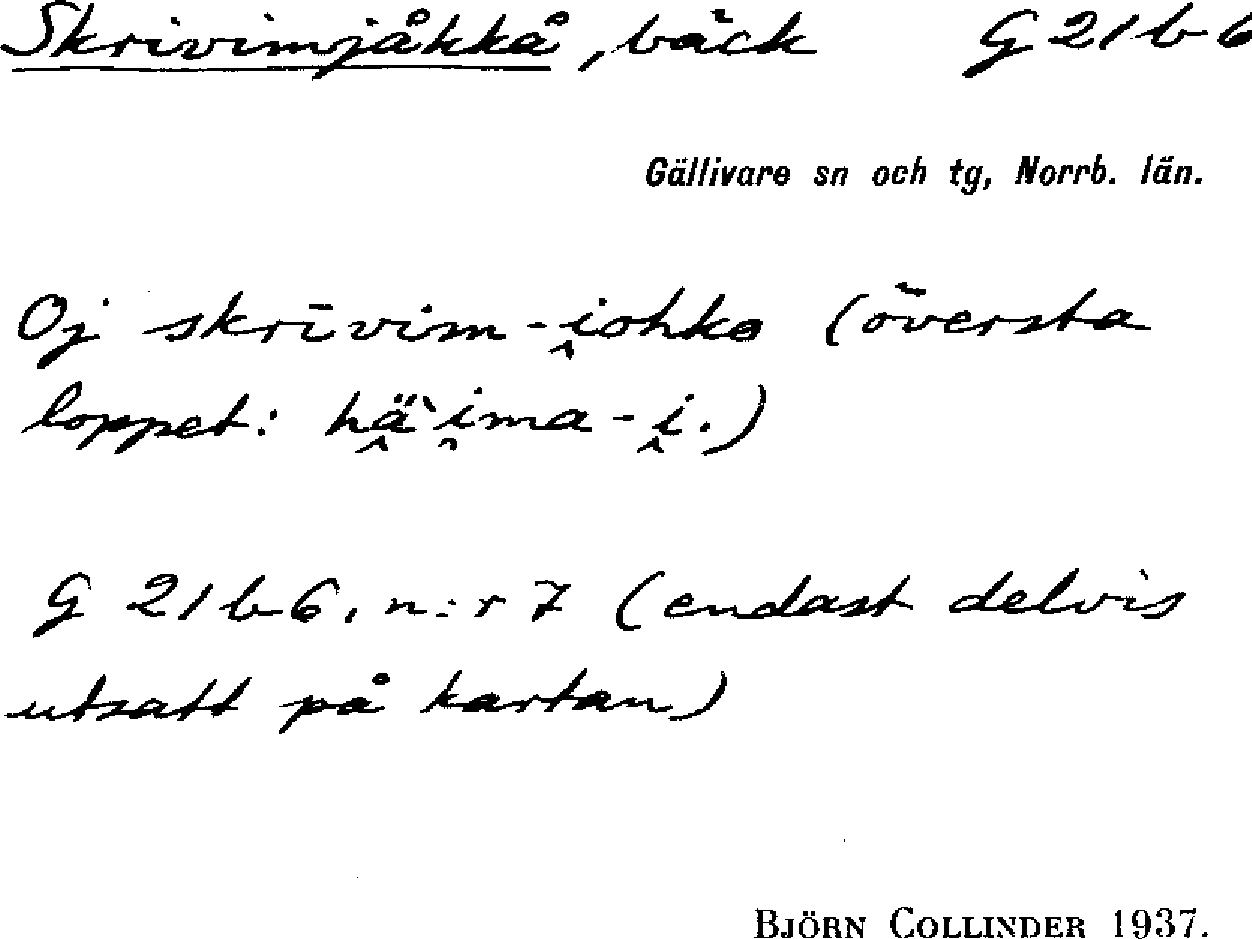 Skrivimjåkkå, bäck G 21 b 6
Gällivare sn och tg, Norrb. län.
Oj skrīvim-i̭ohko (översta
loppet: hä̭`i̯ma-i̭.)
G 21 b 6, n:r 7 (endast delvis
utsatt på kartan)
BJÖRN COLLINDER 1937.